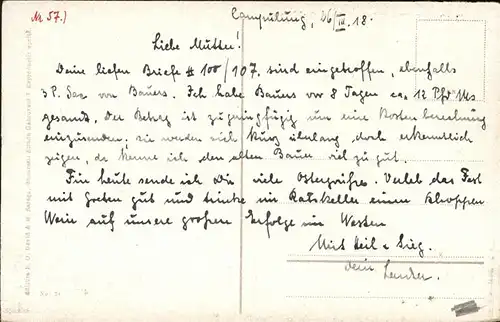 Nr. 57.)
Campulung, 26/III. 18.
Liebe Mutter!
Deine lieben Briefe # 100/107. sind eingetroffen, ebenfalls
3 P. von Bauers. Ich habe Bauers vor 8 Tagen ca. 12 Pfd
gesandt. Der Betrag ist zu geringfügig um eine Kostenberechnung
einzusenden; sie werden sich doch erkenntlich
zeigen, da kenne ich den alten Bauer viel zu gut.
Für heute sende ich Dir viele Ostergrüße. Verleb das Fest
mit Greten gut und trinke im Ratskeller einen Schoppen
Wein auf unsere großen Erfolge im Westen
Mit Heil u. Sieg.
Dein